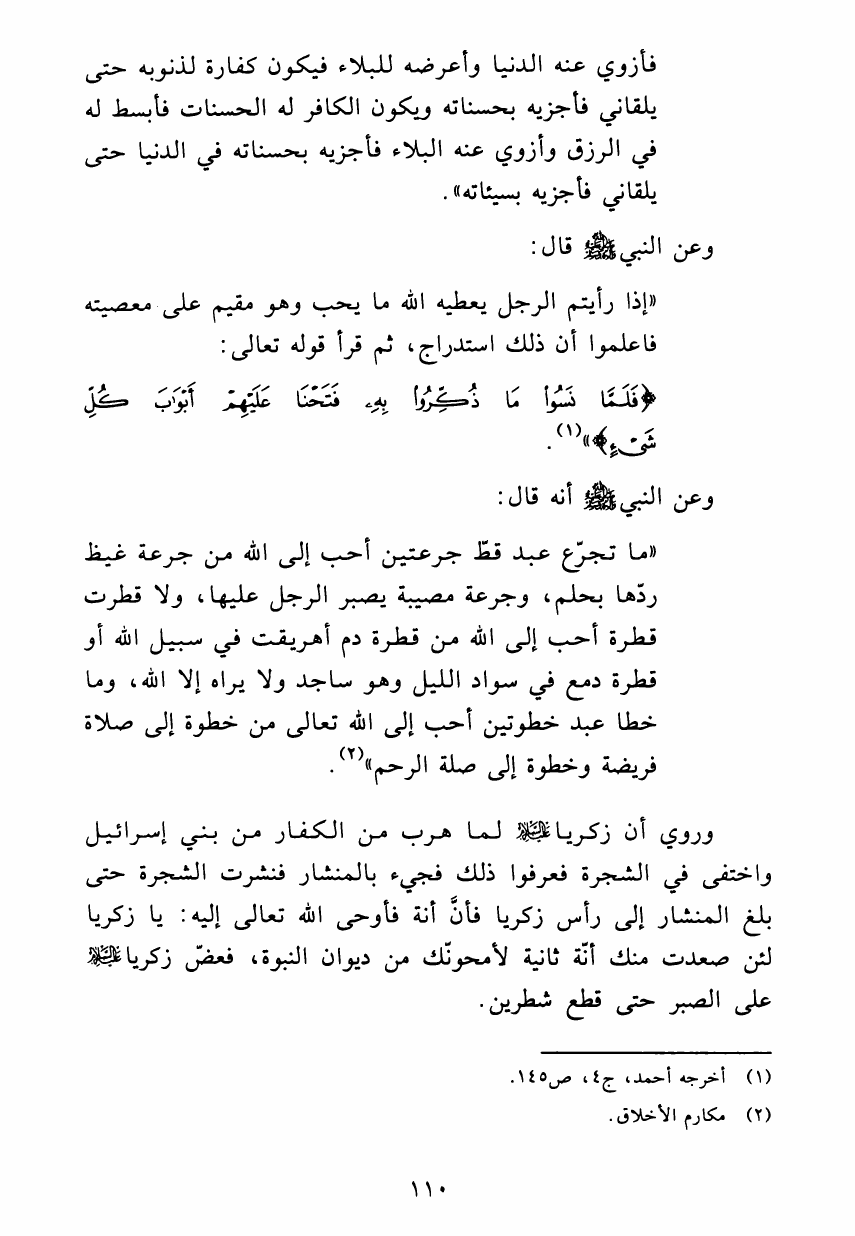 فأزوي عنه الدنيا وأعرضه للبلاء فيكون كفارة لذنوبه حتى
يلقاني فأجزيه بحسناته ويكون الكافر له الحسنات فأبسط له
في الرزق وأزوي عنه البلاء فأجزيه بحسناته في الدنيا حتى
يلقاني فأجزيه بسيئاته».
وعن النبي ﷺ قال:
«إذا رأيتم الرجل يعطيه الله ما يحب وهو مقيم على معصيته
فاعلموا أن ذلك استدراج، ثم قرأ قوله تعالى:
﴿فَلَمَّا نَسُواْ مَا ذُكِّرُواْ بِهِۦ فَتَحْنَا عَلَيْهِمْ أَبْوَٰبَ كُلِّ
شَيْءٍ﴾»(١).
وعن النبي ﷺ أنه قال:
«ما تجرّع عبد قطّ جرعتين أحب إلى الله من جرعة غيظ
ردّها بحلم، وجرعة مصيبة يصبر الرجل عليها، ولا قطرت
قطرة أحب إلى الله من قطرة دم أهريقت في سبيل الله أو
قطرة دمع في سواد الليل وهو ساجد ولا يراه إلا الله، وما
خطا عبد خطوتين أحب إلى الله تعالى من خطوة إلى صلاة
فريضة وخطوة إلى صلة الرحم»(٢).
وروي أن زكريا عليه السلام لما هرب من الكفار من بني إسرائيل
واختفى في الشجرة فعرفوا ذلك فجيء بالمنشار فنشرت الشجرة حتى
بلغ المنشار إلى رأس زكريا فأنَّ أنة فأوحى الله تعالى إليه: يا زكريا
لئن صعدت منك أنّة ثانية لأمحونّك من ديوان النبوة، فعضّ زكريا عليه السلام
على الصبر حتى قطع شطرين.
(١) أخرجه أحمد، ج٤، ص١٤٥.
(٢) مكارم الأخلاق.
١١٠